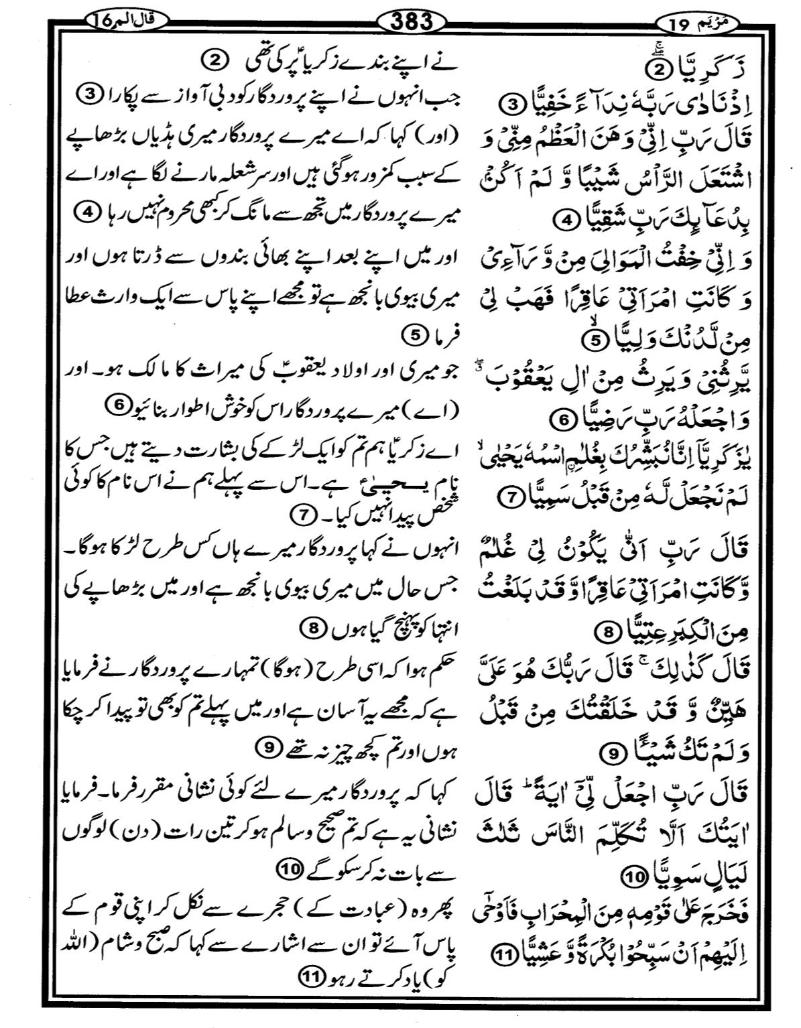 مَرْيَم 19
383
قال الم 16
زَكَرِيَّا ۖۚ ②
اِذْ نَادٰى رَبَّهٗ نِدَآءً خَفِيًّا ③
قَالَ رَبِّ اِنِّىْ وَهَنَ الْعَظْمُ مِنِّىْ وَ
اشْتَعَلَ الرَّاْسُ شَيْبًا وَّ لَمْ اَكُنْۢ
بِدُعَآئِكَ رَبِّ شَقِيًّا ④
وَ اِنِّىْ خِفْتُ الْمَوَالِىَ مِنْ وَّرَآءِىْ
وَ كَانَتِ امْرَاَتِىْ عَاقِرًا فَهَبْ لِىْ
مِنْ لَّدُنْكَ وَلِيًّا ۙ ⑤
يَّرِثُنِىْ وَيَرِثُ مِنْ اٰلِ يَعْقُوْبَ ۖ
وَاجْعَلْهُ رَبِّ رَضِيًّا ⑥
يٰزَكَرِيَّآ اِنَّا نُبَشِّرُكَ بِغُلٰمِ اۨسْمُهٗ يَحْيٰى ۙ
لَمْ نَجْعَلْ لَّهٗ مِنْ قَبْلُ سَمِيًّا ⑦
قَالَ رَبِّ اَنّٰى يَكُوْنُ لِىْ غُلٰمٌ
وَّكَانَتِ امْرَاَتِىْ عَاقِرًا وَّقَدْ بَلَغْتُ
مِنَ الْكِبَرِ عِتِيًّا ⑧
قَالَ كَذٰلِكَ ۚ قَالَ رَبُّكَ هُوَ عَلَىَّ
هَيِّنٌ وَّ قَدْ خَلَقْتُكَ مِنْ قَبْلُ
وَلَمْ تَكُ شَيْئًا ⑨
قَالَ رَبِّ اجْعَلْ لِّىْۤ اٰيَةً ؕ قَالَ
اٰيَتُكَ اَلَّا تُكَلِّمَ النَّاسَ ثَلٰثَ
لَيَالٍ سَوِيًّا ⑩
فَخَرَجَ عَلٰى قَوْمِهٖ مِنَ الْمِحْرَابِ فَاَوْحٰٓى
اِلَيْهِمْ اَنْ سَبِّحُوْا بُكْرَةً وَّ عَشِيًّا ⑪
نے اپنے بندے زکریاؑ پر کی تھی ②
جب انہوں نے اپنے پروردگار کو دبی آواز سے پکارا ③
(اور) کہا کہ اے میرے پروردگار میری ہڈیاں بڑھاپے
کے سبب کمزور ہوگئی ہیں اور سر شعلہ مارنے لگا ہے اور اے
میرے پروردگار میں تجھ سے مانگ کر کبھی محروم نہیں رہا ④
اور میں اپنے بعد اپنے بھائی بندوں سے ڈرتا ہوں اور
میری بیوی بانجھ ہے تو مجھے اپنے پاس سے ایک وارث عطا
فرما ⑤
جو میری اور اولاد یعقوبؑ کی میراث کا مالک ہو۔ اور
(اے) میرے پروردگار اس کو خوش اطوار بنائیو ⑥
اے زکریاؑ ہم تم کو ایک لڑکے کی بشارت دیتے ہیں جس کا
نام یحییٰؑ ہے۔ اس سے پہلے ہم نے اس نام کا کوئی
شخص پیدا نہیں کیا۔ ⑦
انہوں نے کہا پروردگار میرے ہاں کس طرح لڑکا ہوگا۔
جس حال میں میری بیوی بانجھ ہے اور میں بڑھاپے کی
انتہا کو پہنچ گیا ہوں ⑧
حکم ہوا کہ اسی طرح (ہوگا) تمہارے پروردگار نے فرمایا
ہے کہ مجھے یہ آسان ہے اور میں پہلے تم کو بھی تو پیدا کر چکا
ہوں اور تم کچھ چیز نہ تھے ⑨
کہا کہ پروردگار میرے لئے کوئی نشانی مقرر فرما۔ فرمایا
نشانی یہ ہے کہ تم صحیح و سالم ہو کر تین رات (دن) لوگوں
سے بات نہ کر سکو گے ⑩
پھر وہ (عبادت کے) حجرے سے نکل کر اپنی قوم کے
پاس آئے تو ان سے اشارے سے کہا کہ صبح و شام (اللہ
کو) یاد کرتے رہو ⑪